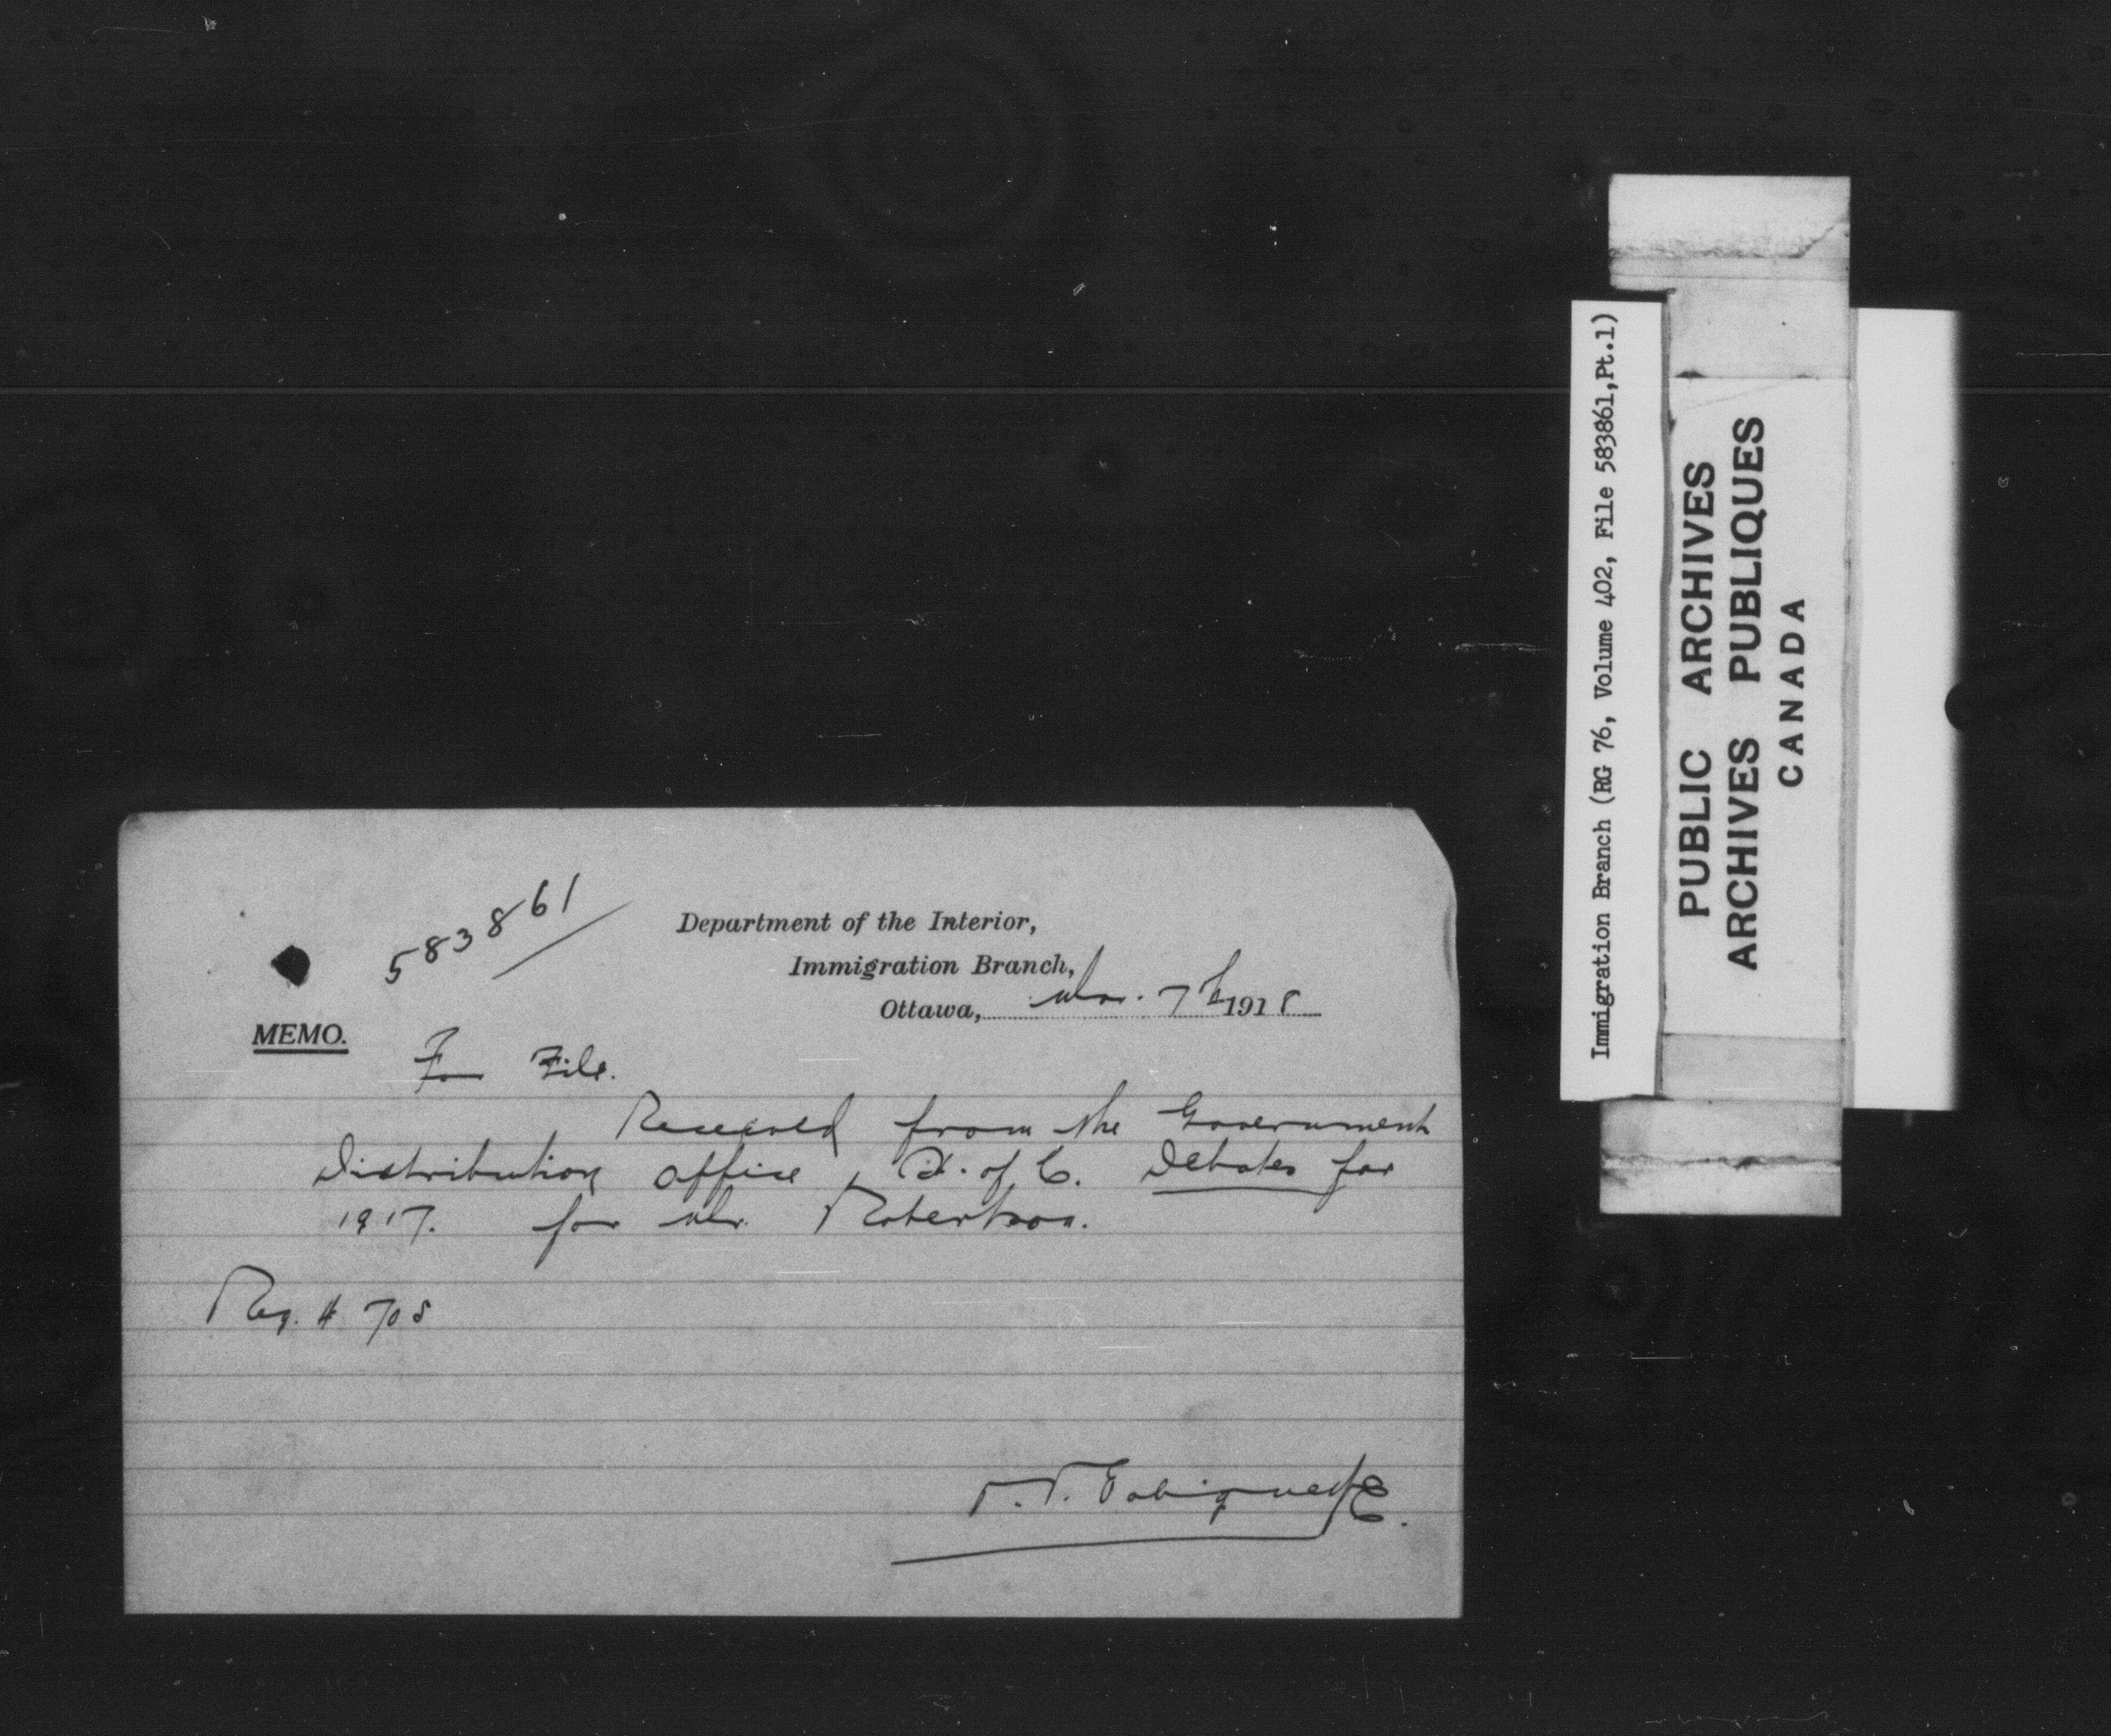 583861
Department of the Interior,
Immigration Branch,
Ottawa, Mar. 7th 1918
MEMO.
For File.
Received from the Government
Distribution Office, H. of C. Debates for
1917. for Mr. Robertson.
Req. # 708
Immigration Branch (RG 76, Volume 402, File 583861,Pt.1)
PUBLIC ARCHIVES
ARCHIVES PUBLIQUES
CANADA